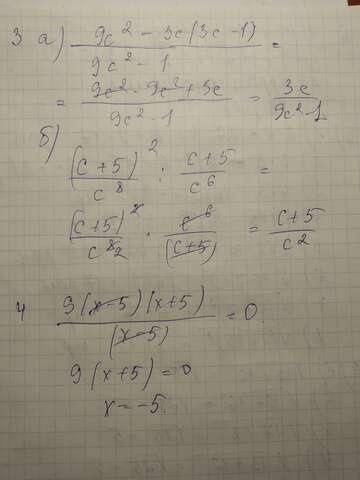 3 а) (9c² - 3c(3c-1))/(9c² - 1) =
= (9c² - 9c² + 3c)/(9c² - 1) = 3c/(9c² - 1)
б)
(c+5)²/c⁸ : (c+5)/c⁶ =
(c+5)²/c⁸₂ · c⁶/(c+5) = (c+5)/c²
4 9(x-5)(x+5)/(x-5) = 0
9(x+5) = 0
x = -5